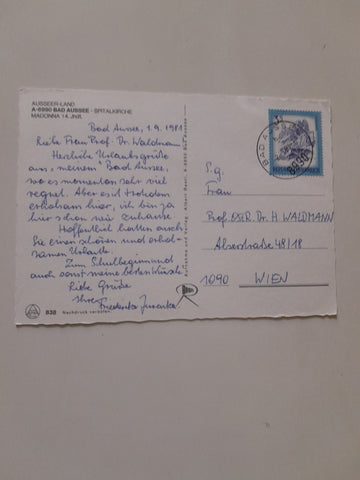 AUSSEER-LAND
A-8990 BAD AUSSEE - SPITALKIRCHE
MADONNA 14. JHR.
Bad Aussee, 1.9.1981
Liebe Frau Prof. Dr. Waldmann
Herzliche Urlaubsgrüße
aus „meinem" Bad Aussee,
wo es momentan sehr viel
regnet. Aber es ist trotzdem
erholsam hier, ich bin ja
hier schon wie zuhause.
Hoffentlich hatten auch
Sie einen schönen und erhol-
samen Urlaub.
Zum Schulbeginn und
auch sonst meine besten Wünsche!
Liebe Grüße
Ihre
Friederike
838 Nachdruck verboten
BAD AUSSEE
8990
S.g.
Frau
Prof. OStR. Dr. H. WALDMANN
Alserstraße 48/18
1090 WIEN